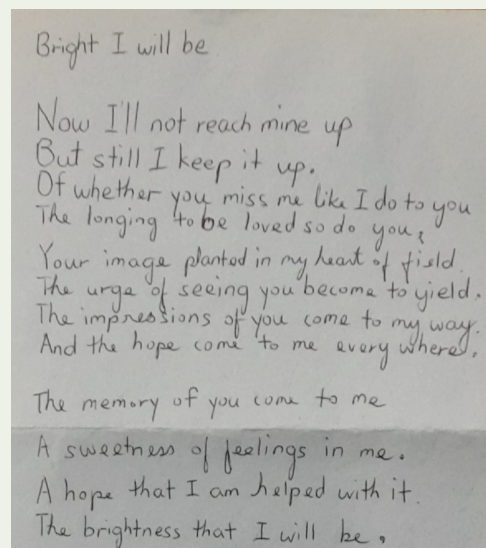 Bright I will be
Now I'll not reach mine up
But still I keep it up.
Of whether you miss me like I do to you
The longing to be loved so do you,
Your image planted in my heart of field.
The urge of seeing you become to yield.
The impressions of you come to my way.
And the hope come to me every where.
The memory of you come to me
A sweetness of feelings in me.
A hope that I am helped with it.
The brightness that I will be.